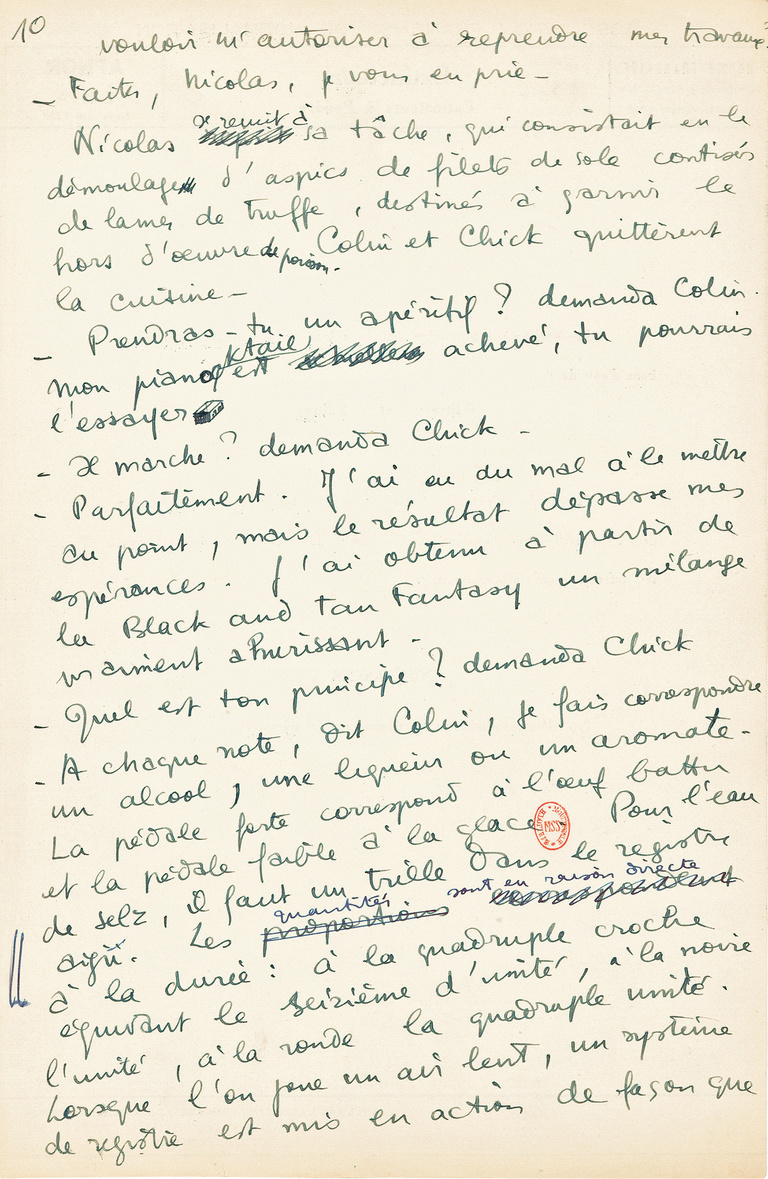 10
vouloir m'autoriser à reprendre mes travaux.
- Faites, Nicolas, je vous en prie -
Nicolas se remit à sa tâche, qui consistait en le
démoulage d'aspics de filets de sole contisés
de lames de truffe, destinés à garnir le
hors d'œuvre de poisson. Colin et Chick quittèrent
la cuisine -
- Prendras-tu un apéritif? demanda Colin.
mon pianocktail est achevé, tu pourrais
l'essayer
- Il marche? demanda Chick -
- Parfaitement. J'ai eu du mal à le mettre
au point, mais le résultat dépasse mes
espérances. J'ai obtenu à partir de
la Black and tan Fantasy un mélange
vraiment ahurissant -
- Quel est ton principe? demanda Chick
- A chaque note, dit Colin, je fais correspondre
un alcool, une liqueur ou un aromate -
La pédale forte correspond à l'œuf battu
et la pédale faible à la glace. Pour l'eau
de selz, il faut un trille dans le registre
aigü. Les proportions quantités sont en raison directe
à la durée: à la quadruple croche
équivaut le seizième d'unité, à la noire
l'unité, à la ronde la quadruple unité.
Lorsque l'on joue un air lent, un système
de registre est mis en action de façon que